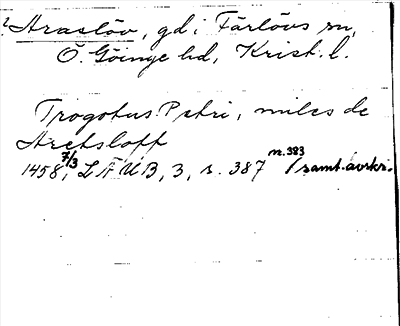 2 Araslöv, gd i Färlövs sn,
Ö. Göinge hd, Krist. l.
Trogotus Petri, miles de
Arebsloff
1458 7/3, LÄUB, 3, s. 387 nr. 383 (samt. avskr.